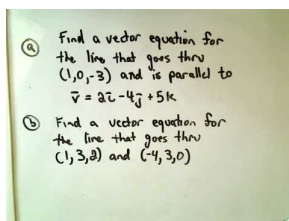 ⓐ Find a vector equation for
the line that goes thru
(1,0,-3) and is parallel to
v̄ = 2ī - 4j̄ + 5k
ⓑ Find a vector equation for
the line that goes thru
(1,3,2) and (-4,3,0)